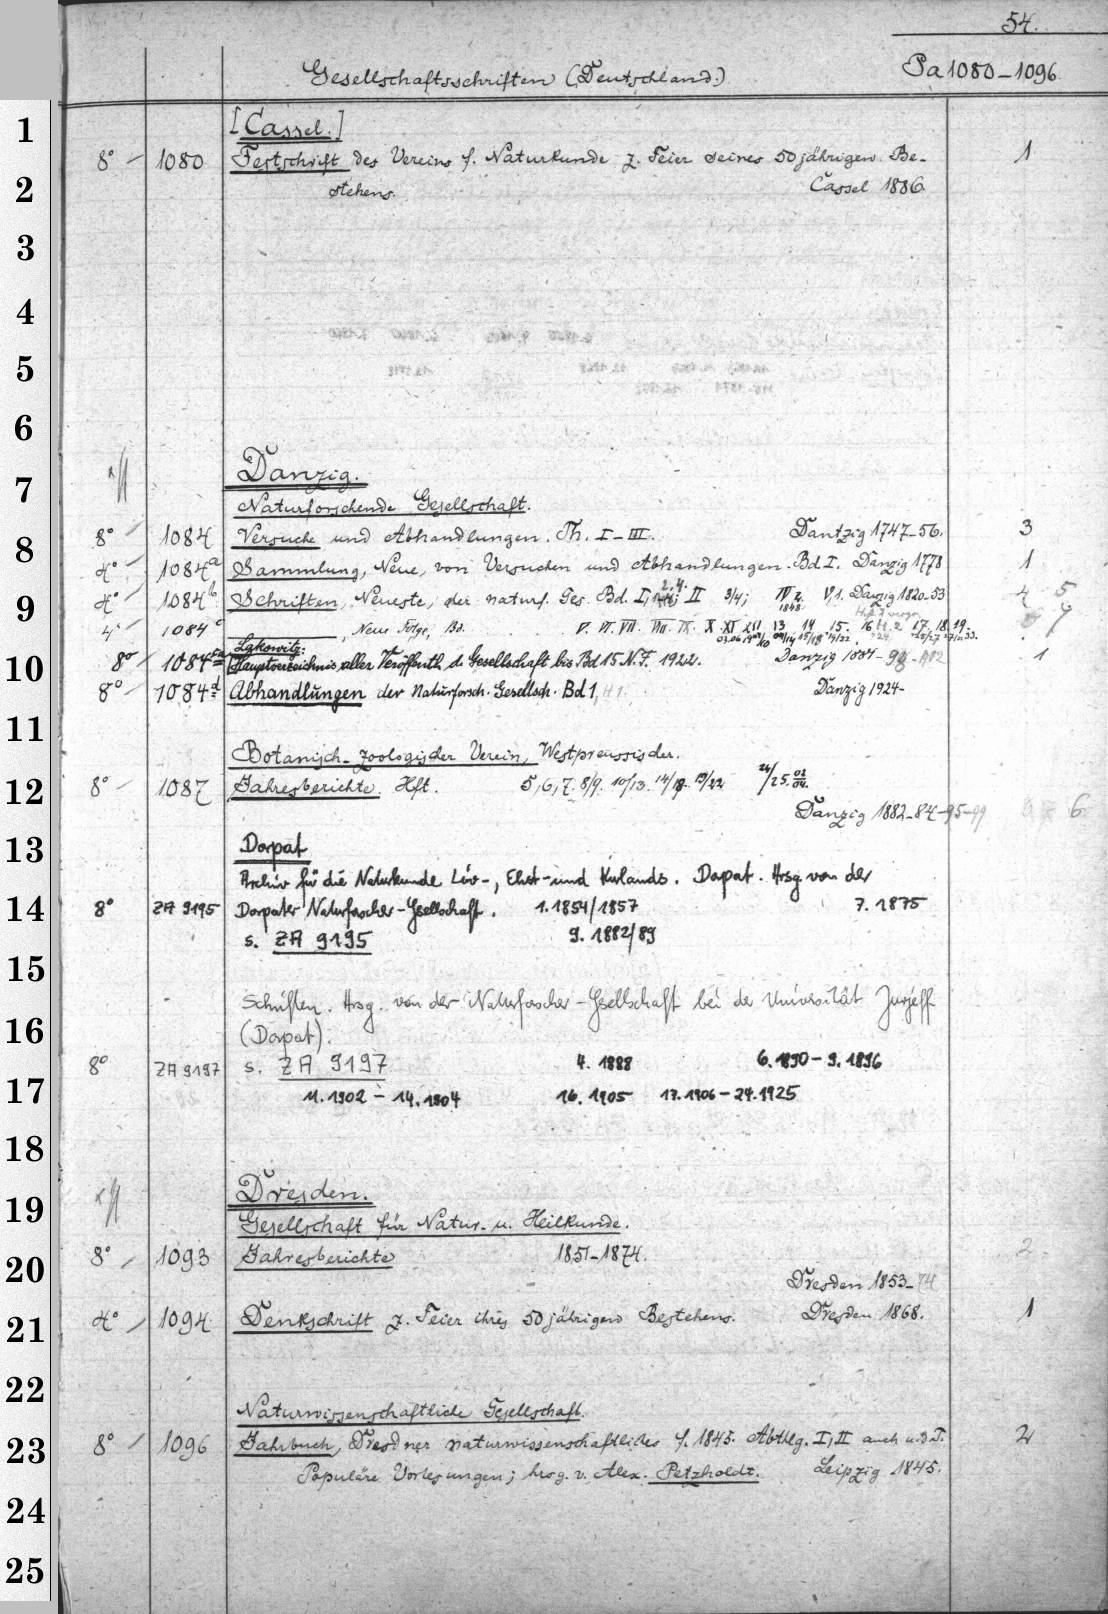 54.
Gesellschaftsschriften (Deutschland.) Pa 1080–1096
1
[Cassel.]
8° 1080 Festschrift des Vereins f. Naturkunde z. Feier seines 50jährigen Be- 1
2
stehens. Cassel 1886
3
4
5
6
7
Danzig.
Naturforschende Gesellschaft.
8
8° 1084 Versuche und Abhandlungen. Th. I–III. Dantzig 1747–56. 3
4° 1084a Sammlung, Neue, von Versuchen und Abhandlungen. Bd I. Danzig 1778 1
9
4° 1084b Schriften, Neueste, der naturf. Ges. Bd. I, II 3/4; IV 2. V,1. Danzig 1820–53 4 5
1848
4° 1084c , Neue Folge, Bd. V. VI. VII. VIII. IX. X. XI XII 13 14 15. 16 H. 2 17. 18. 19.
10
Lakowitz:
8° 1084ca Hauptverzeichnis aller Veröffentl. d. Gesellschaft bis Bd 15 N.F. 1922. Danzig 1884– 1
8° 1084d Abhandlungen der Naturforsch. Gesellsch. Bd 1, H 1. Danzig 1924–
11
Botanisch-zoologischer Verein, Westpreussischer.
12
8° 1087 Jahresberichte. Hft. 5, 6, 7. 8/9. 10/13. 14/18. 19/22 24/25. 02/04.
Danzig 1882–84–95–99 6
13
Dorpat
Archiv für die Naturkunde Liv-, Ehst- und Kurlands. Dorpat. Hrsg von der
14
8° ZA 9195 Dorpater Naturforscher-Gesellschaft. 1. 1854/1857 7. 1875
s. ZA 9195 9. 1882/89
15
Schriften. Hrsg. von der Naturforscher-Gesellschaft bei der Universität Jurjeff
16
(Dorpat).
8° ZA 9197 s. ZA 9197 4. 1888 6. 1890 – 9. 1896
17
11. 1902 – 14. 1904 16. 1905 17. 1906 – 24. 1925
18
19
Dresden.
Gesellschaft für Natur- u. Heilkunde.
20
8° 1093 Jahresberichte 1851–1874. 2
Dresden 1853–74
21
4° 1094 Denkschrift z. Feier ihres 50jährigen Bestehens. Dresden 1868. 1
22
Naturwissenschaftliche Gesellschaft.
23
8° 1096 Jahrbuch, Dresdner naturwissenschaftliches f. 1845. Abthlg. I, II auch u. d. T. 2
Populäre Vorlesungen; hrsg. v. Alex. Petzholdt. Leipzig 1845.
24
25